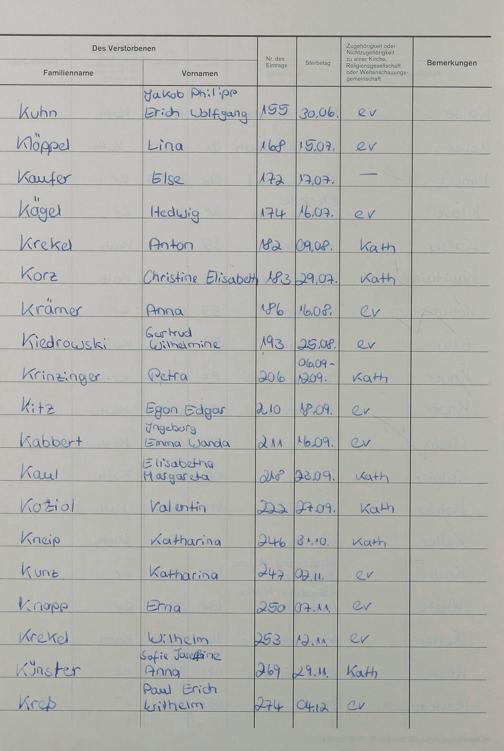 Des Verstorbenen
Familienname Vornamen Nr. des Eintrags Sterbetag Zugehörigkeit oder Nichtzugehörigkeit zu einer Kirche, Religionsgesellschaft oder Weltanschauungsgemeinschaft Bemerkungen
Jakob Philipp
Kuhn Erich Wolfgang 155 30.06. ev
Klöppel Lina 168 15.07. ev
Kaufer Else 172 17.07. —
Kägel Hedwig 174 16.07. ev
Krekel Anton 182 09.08. Kath
Korz Christine Elisabeth 183 29.07. Kath
Krämer Anna 186 16.08. ev
Gertrud
Kiedrowski Wilhelmine 193 25.08. ev
06.09-
Krinzinger Petra 206 12.09. Kath
Kitz Egon Edgar 210 18.09. ev
Ingeborg
Kabbert Emma Wanda 211 16.09. ev
Elisabetha
Kaul Margareta 218 23.09. Kath
Koziol Valentin 222 27.09. Kath
Kneip Katharina 246 31.10. Kath
Kunz Katharina 247 02.11. ev
Knapp Erna 250 07.11 ev
Krekel Wilhelm 253 12.11 ev
Sofie Josefine
Künster Anna 269 29.11. Kath
Paul Erich
Kreß Wilhelm 274 04.12 ev